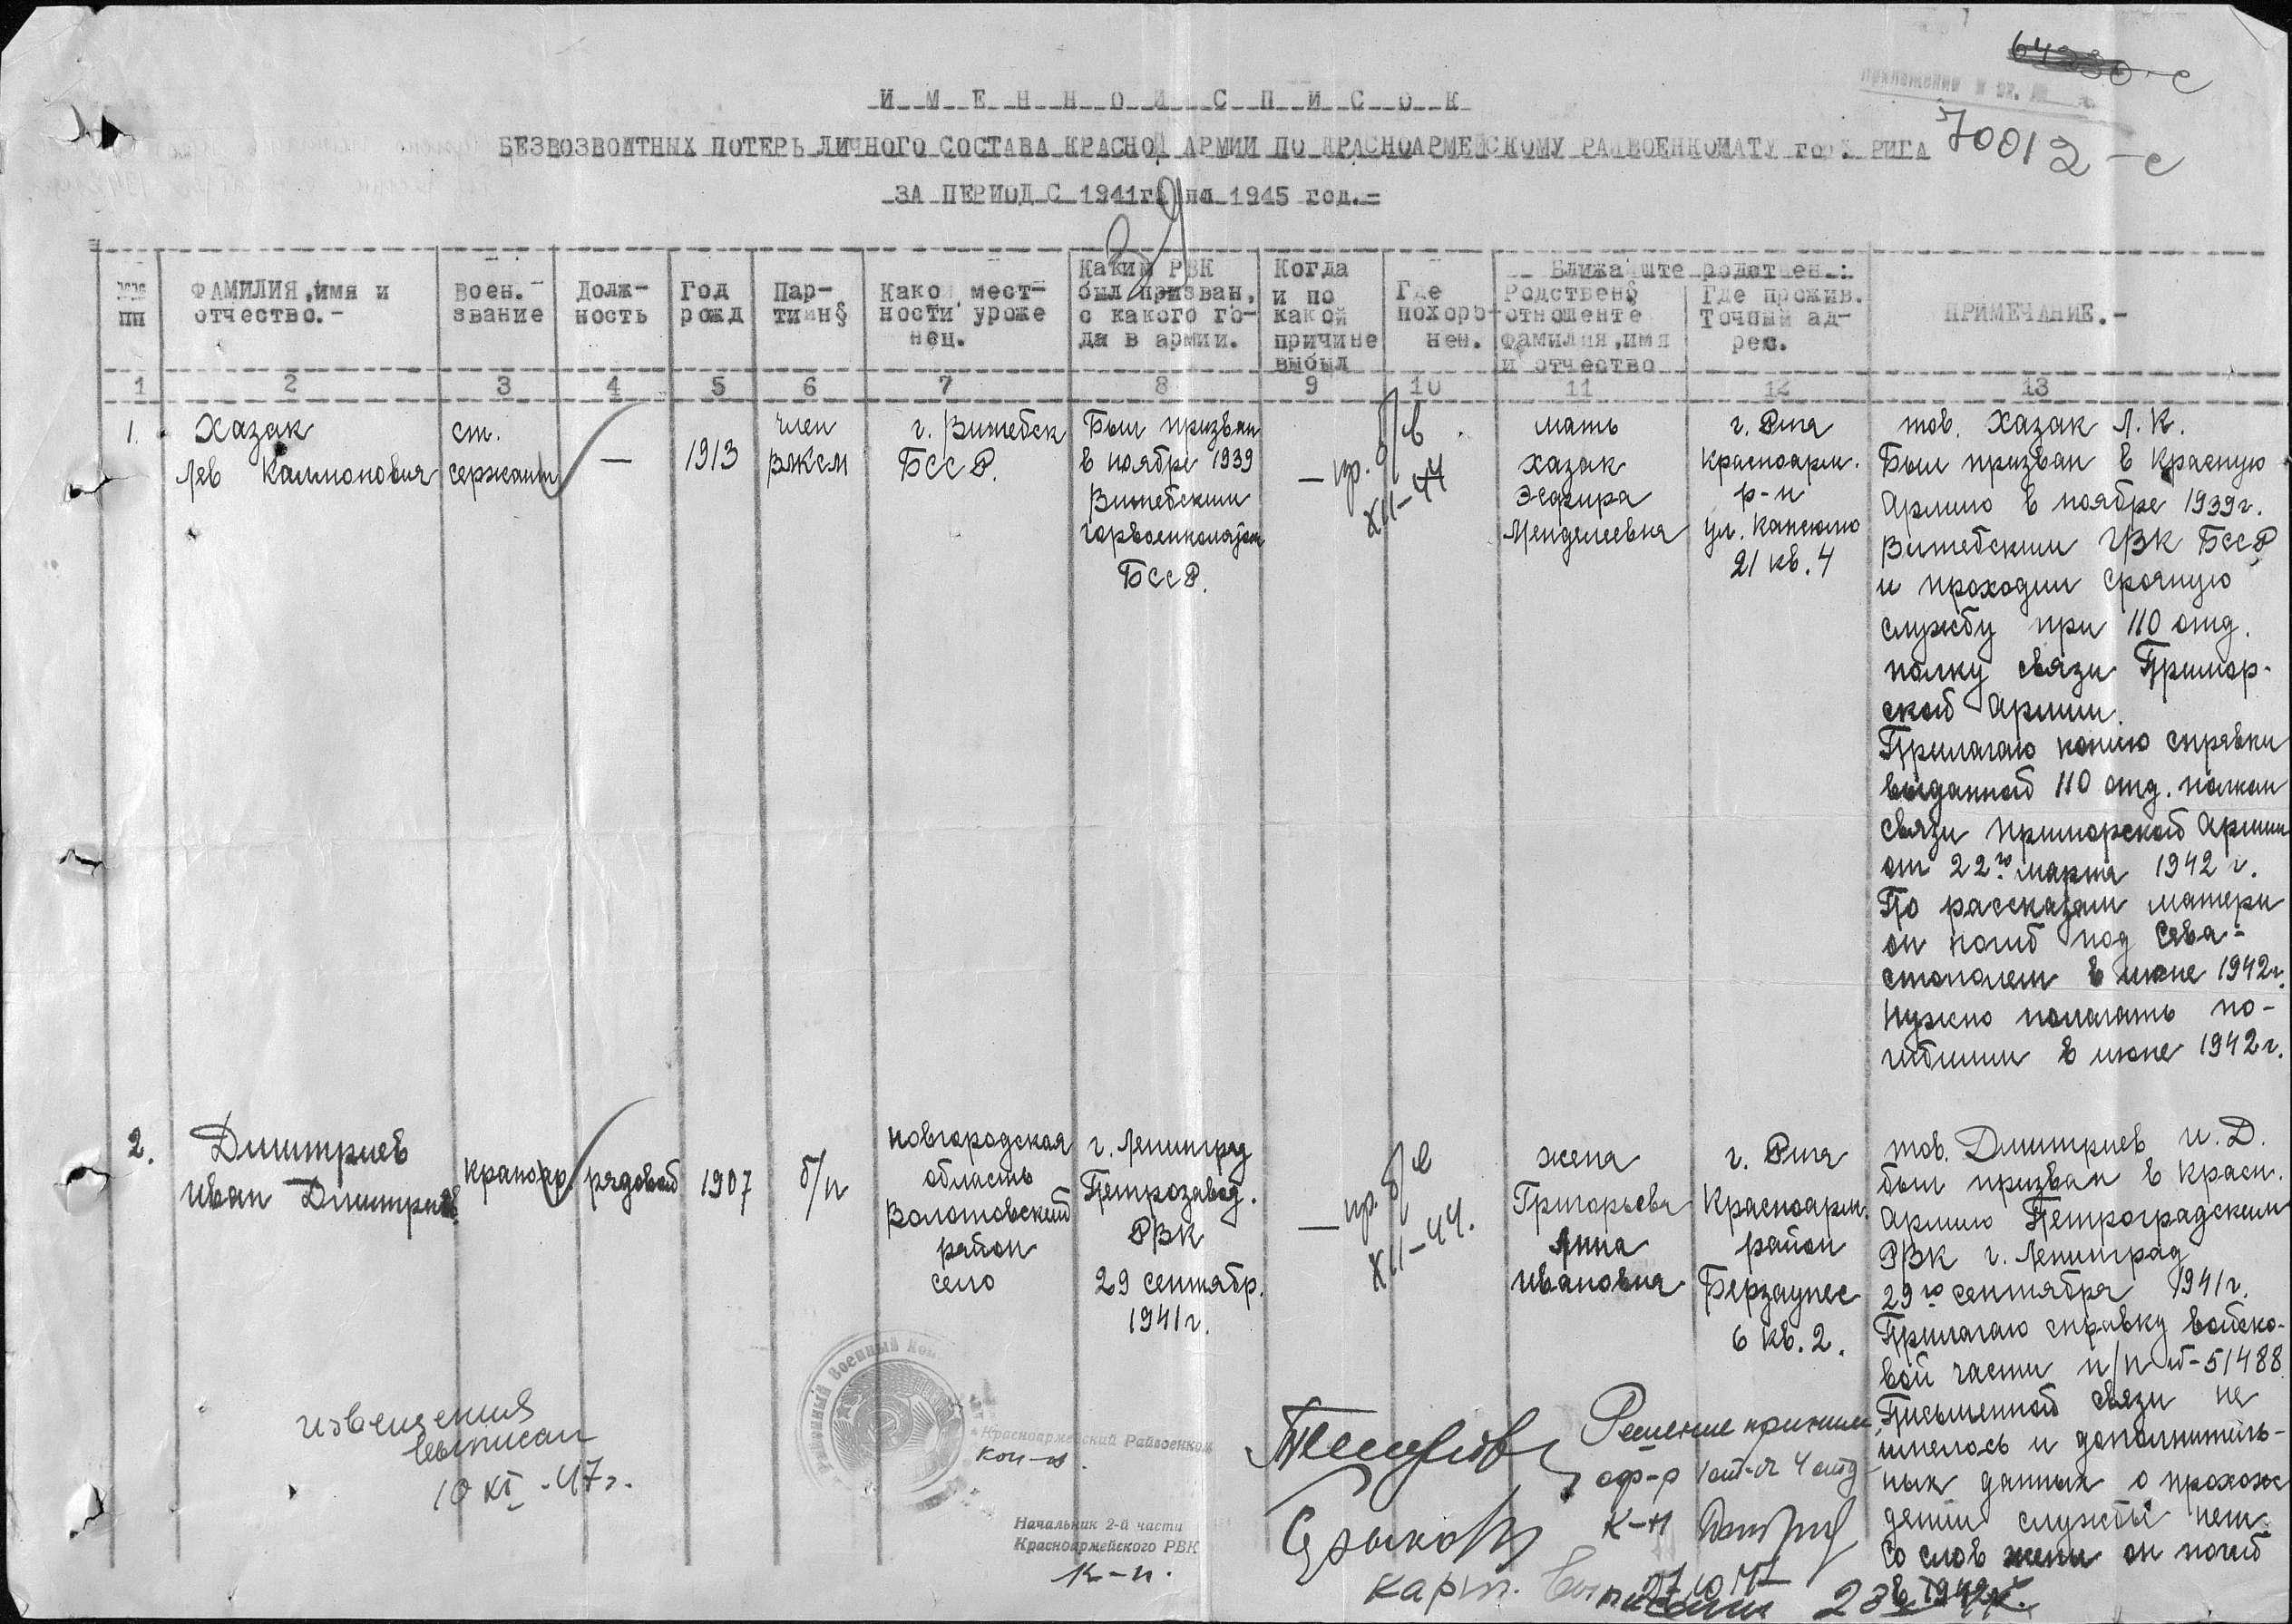 64230-с
70012-с
И М Е Н Н О Й С П И С О К
БЕЗВОЗВОИТНЫХ ПОТЕРЬ ЛИЧНОГО СОСТАВА КРАСНОЙ АРМИИ ПО КРАСНОАРМЕЙСКОМУ РАЙВОЕНКОМАТУ гор. РИГА
ЗА ПЕРИОД С 1941г. по 1945 год.=
№№ пп
ФАМИЛИЯ,имя и
отчество.-
воен.
звание
Долж-
ность
Год
рожд
Пар-
тийн§
Како мест-
ности уроже
нец.
Каким РВК
был призван,
с какого го-
да в армии.
Когда
и по
какой
причине
выбыл
Где
похоро-
нен.
Ближайште родствен.:
Родствен§
отношенте
фамилия,имя
и отчество
Где прожив.
Точный ад-
рес.
ПРИМЕЧАНИЕ.-
1 2 3 4 5 6 7 8 9 10 11 12 13
1.
Хазак
Лев Калмонович
ст.
сержант
—
1913
член
ВЛКСМ
г. Витебск
БССР.
Был призван
в ноябре 1939
Витебским
горвоенкоматом
БССР.
— пр. б/в
XII-44
мать
Хазак
Эсфира
Менделеевна
г. Рига
Красноарм.
р-н
21 кв. 4
тов. Хазак Л.К.
Был призван в Красную
Армию в ноябре 1939г.
Витебским ГВК БССР
и проходил срочную
службу при 110 отд.
полку связи Примор-
ской Армии.
Прилагаю копию справки
выданной 110 отд. полком
связи Приморской Армии
от 22го марта 1942 г.
По рассказам матери
он погиб под Сева-
стополем в июне 1942г.
Нужно полагать по-
гибшим в июне 1942г.
2.
Дмитриев
Иван Дмитрие
красноар
рядовой
1907
б/п
Новгородская
область
Волотовский
район
село
г. Ленинград
Петрозавод.
РВК
29 сентябр.
1941г.
— пр. б/в
XII-44.
жена
Григорьева
Анна
Ивановна
г. Рига
Красноарм.
район
Берзаунес
6 кв. 2.
тов. Дмитриев И.Д.
был призван в Красн.
Армию Петроградским
РВК г. Ленинград
29го сентября 1941г.
Прилагаю справку войско-
вой части п/п №-51488
Письменной связи не
имелось и дополнитель-
ных данных о прохож
дении службы нет.
Со слов жены он погиб
в 1942г.
извещения
выписал
10 XI -47г.
Районный Военный Ком
Красноармейский Райвоенком
Начальник 2-й части
Красноармейского РВК
к-н.
Решение принял
оф-р 1 отд-я 4 отд
к-н
карт.